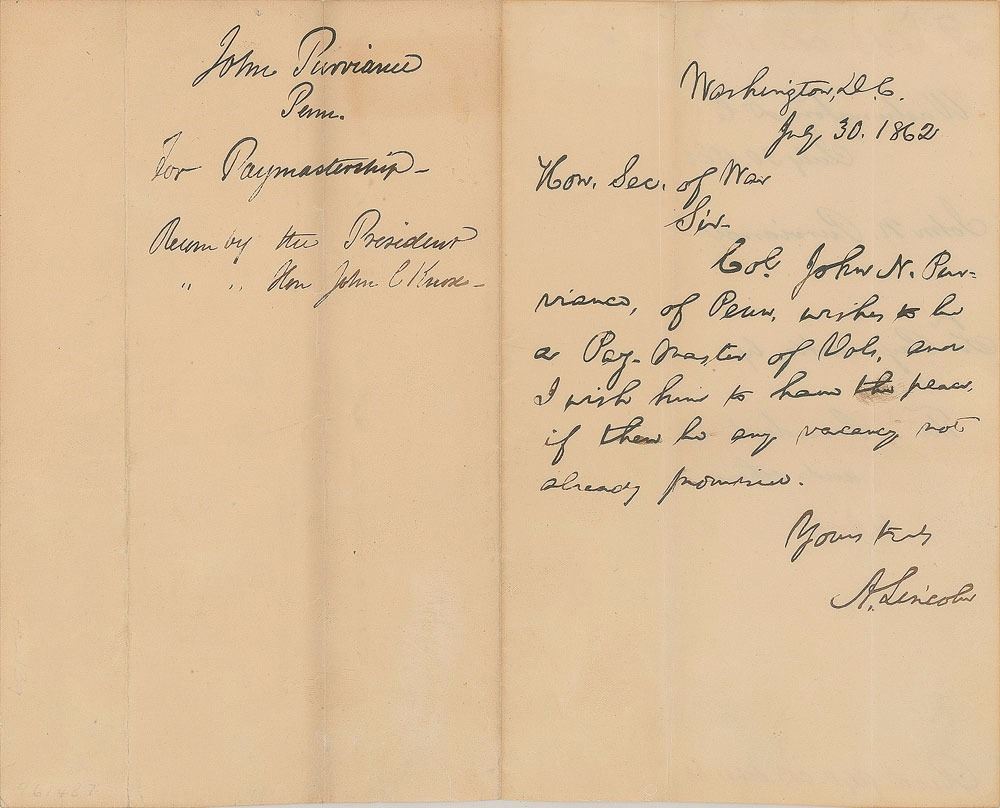 John Purviance
Penn.
For Paymastership -
Recom by the President
" " Hon John C Knox -
Washington, D.C.
July 30. 1862
Hon. Sec. of War
Sir -
Col. John N. Pur-
viance, of Penn, wishes to be
a Pay-Master of Vols, and
I wish him to have the place,
if there be any vacancy not
already promised.
Yours truly
A. Lincoln